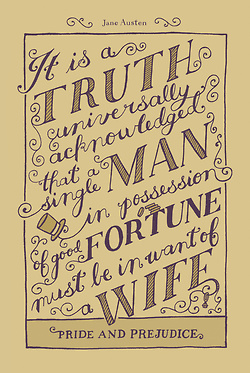 Jane Austen
It is a
TRUTH
universally
acknowledged
that a
single MAN
in possession
of good FORTUNE
must be in want of
a WIFE
PRIDE AND PREJUDICE